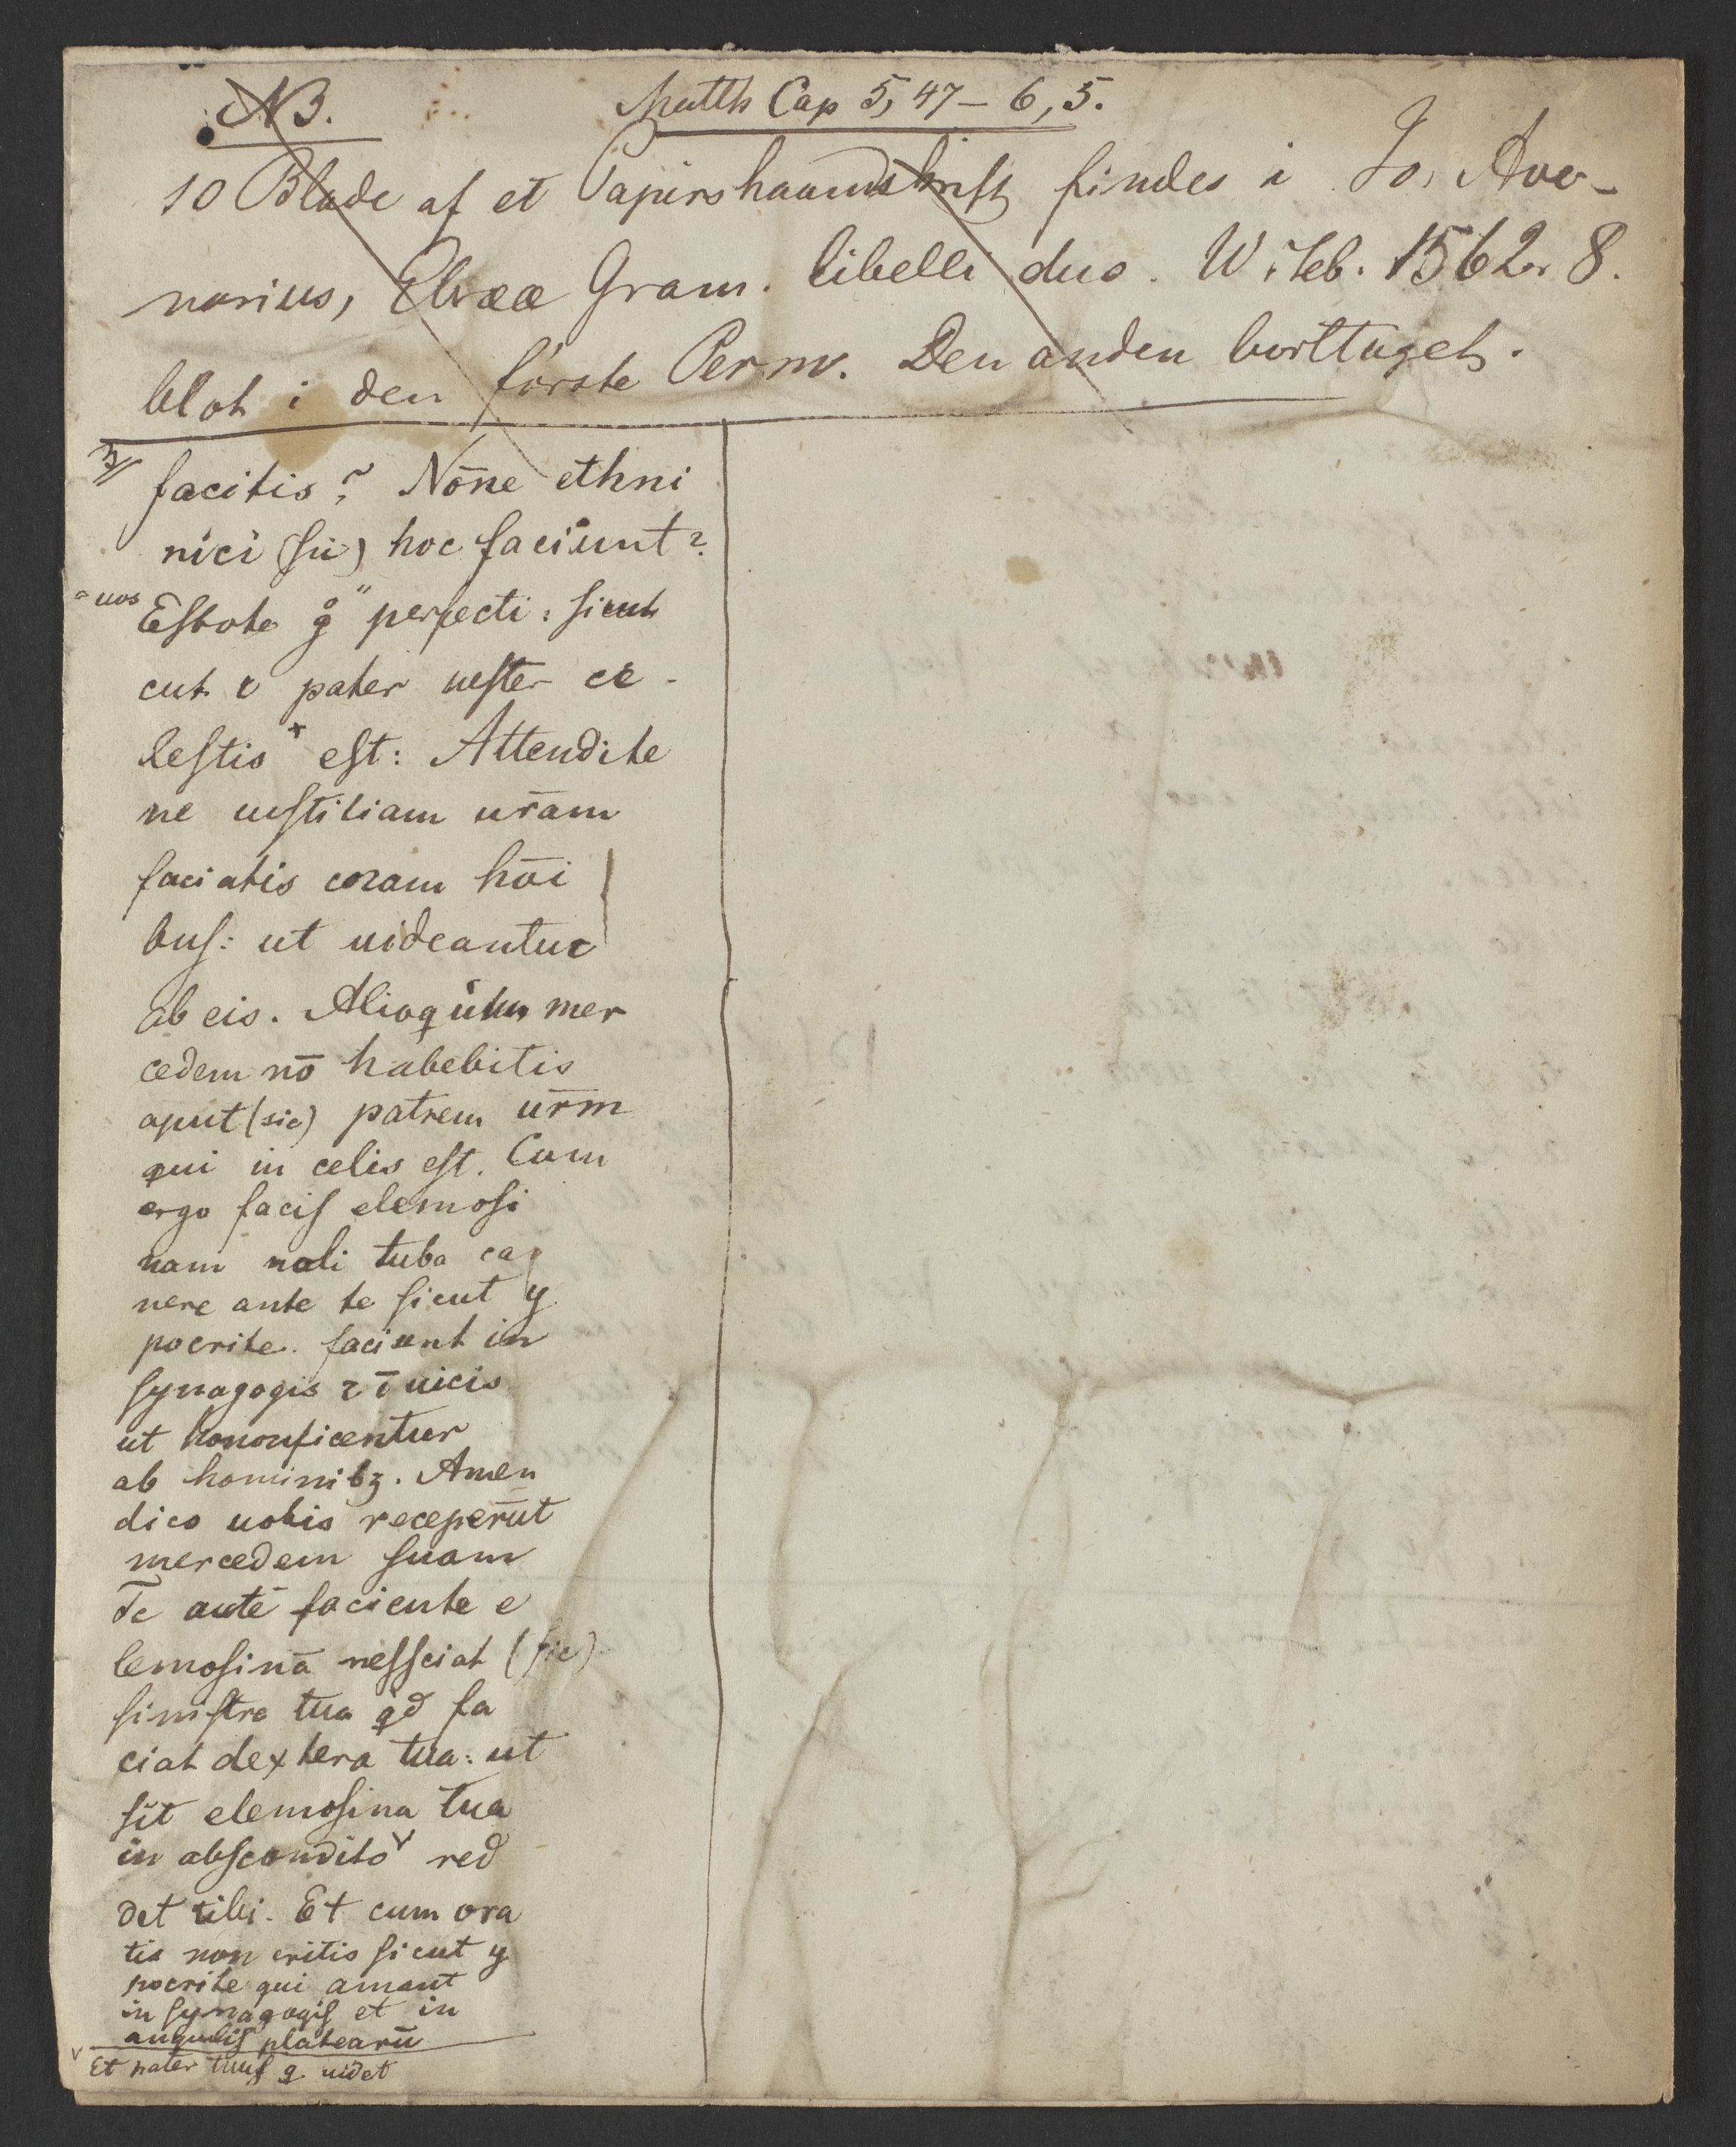 NB.
Matth Cap 5, 47 – 6, 5.
10 Blade af et Papirshaandskrift findes i Jo. Ave-
narius, Ebrææ Gram. libelli duo. Witeb. 1562. 8.
blot i den förste Perm. Den anden borttaget.
facitis? Nōne ethni
nici (sic) hoc faciunt?
" uos
Eſtote g̊ " perfecti: ſicut
cut e pater ueſter ce-
leſtis + eſt: Attendite
ne iuſtitiam ur̄am
faciatis coram hōi
buſ: ut uideantur
ab eis. Alioquin mer
cedem nō habebitis
aput (sic) patrem ur̄m
qui in celis eſt. Cum
ergo faciſ elemoſi
nam noli tuba ca
nere ante te ſicut y
pocrite faciunt in
ſynagogis ⁊ ī uicis
ut honorificentur
ab hominibꝫ. Amen
dico uobis receperūt
mercedem ſuam
Te autē faciente e
lemoſinā neſſciat (ſic)
ſiniſtra tua qd fa
ciat dextera tua: ut
ſit elemoſina tua
in abſcondito v red
det tibi. Et cum ora
tis non eritis ſicut y
pocrite qui amant
in ſynagogiſ et in
anguliſ platearū
v Et pater tuuſ q uidet